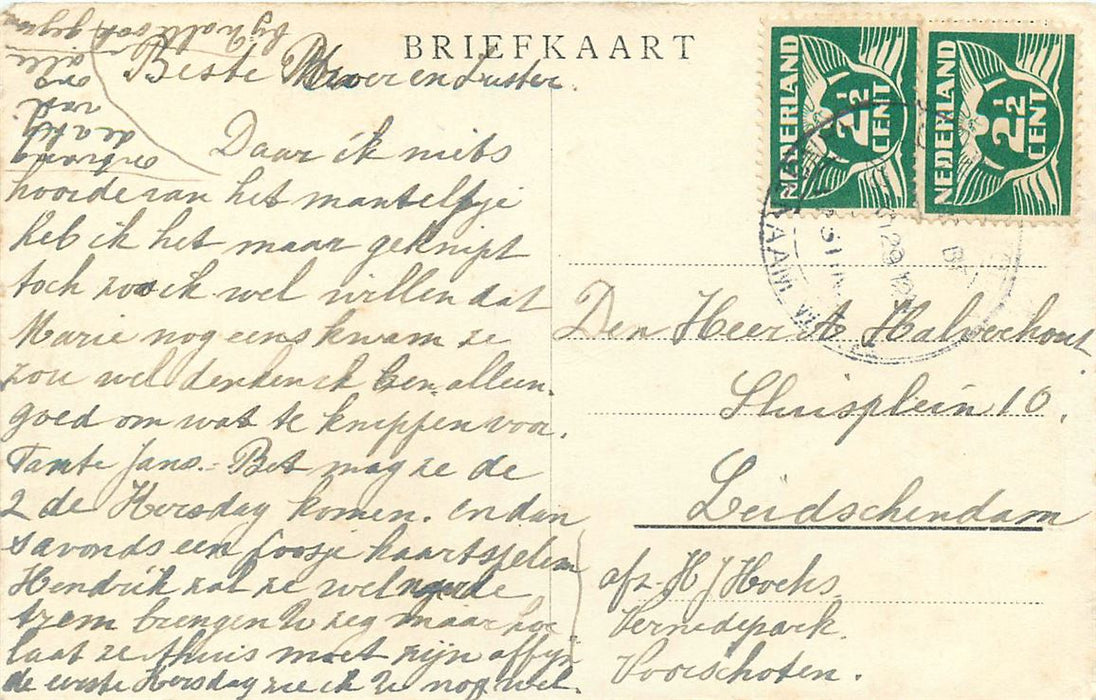 BRIEFKAART
NEDERLAND
2½
CENT
NEDERLAND
2½
CENT
Beste Broer en Zuster.
Daar ik niets
hoorde van het manteltje
heb ik het maar geknipt
toch zou ik wel willen dat
Marie nog eens kwam ze
zou wel denken ik ben alleen
goed om wat te knippen voor
Tante Jans. - Bet mag ze de
2de Kersdag komen. en dan
s avonds een poosje kaartspelen
Hendrik zal ze wel naar de
trem brengen U zeg maar hoe
laat ze thuis moet zijn affijn
de eerste Kersdag zie ik U nog wel.
Den Heer A Halverhout
Sluisplein 10.
Leidschendam
afz. H J Hoeks
Vernedepark.
Voorschoten.